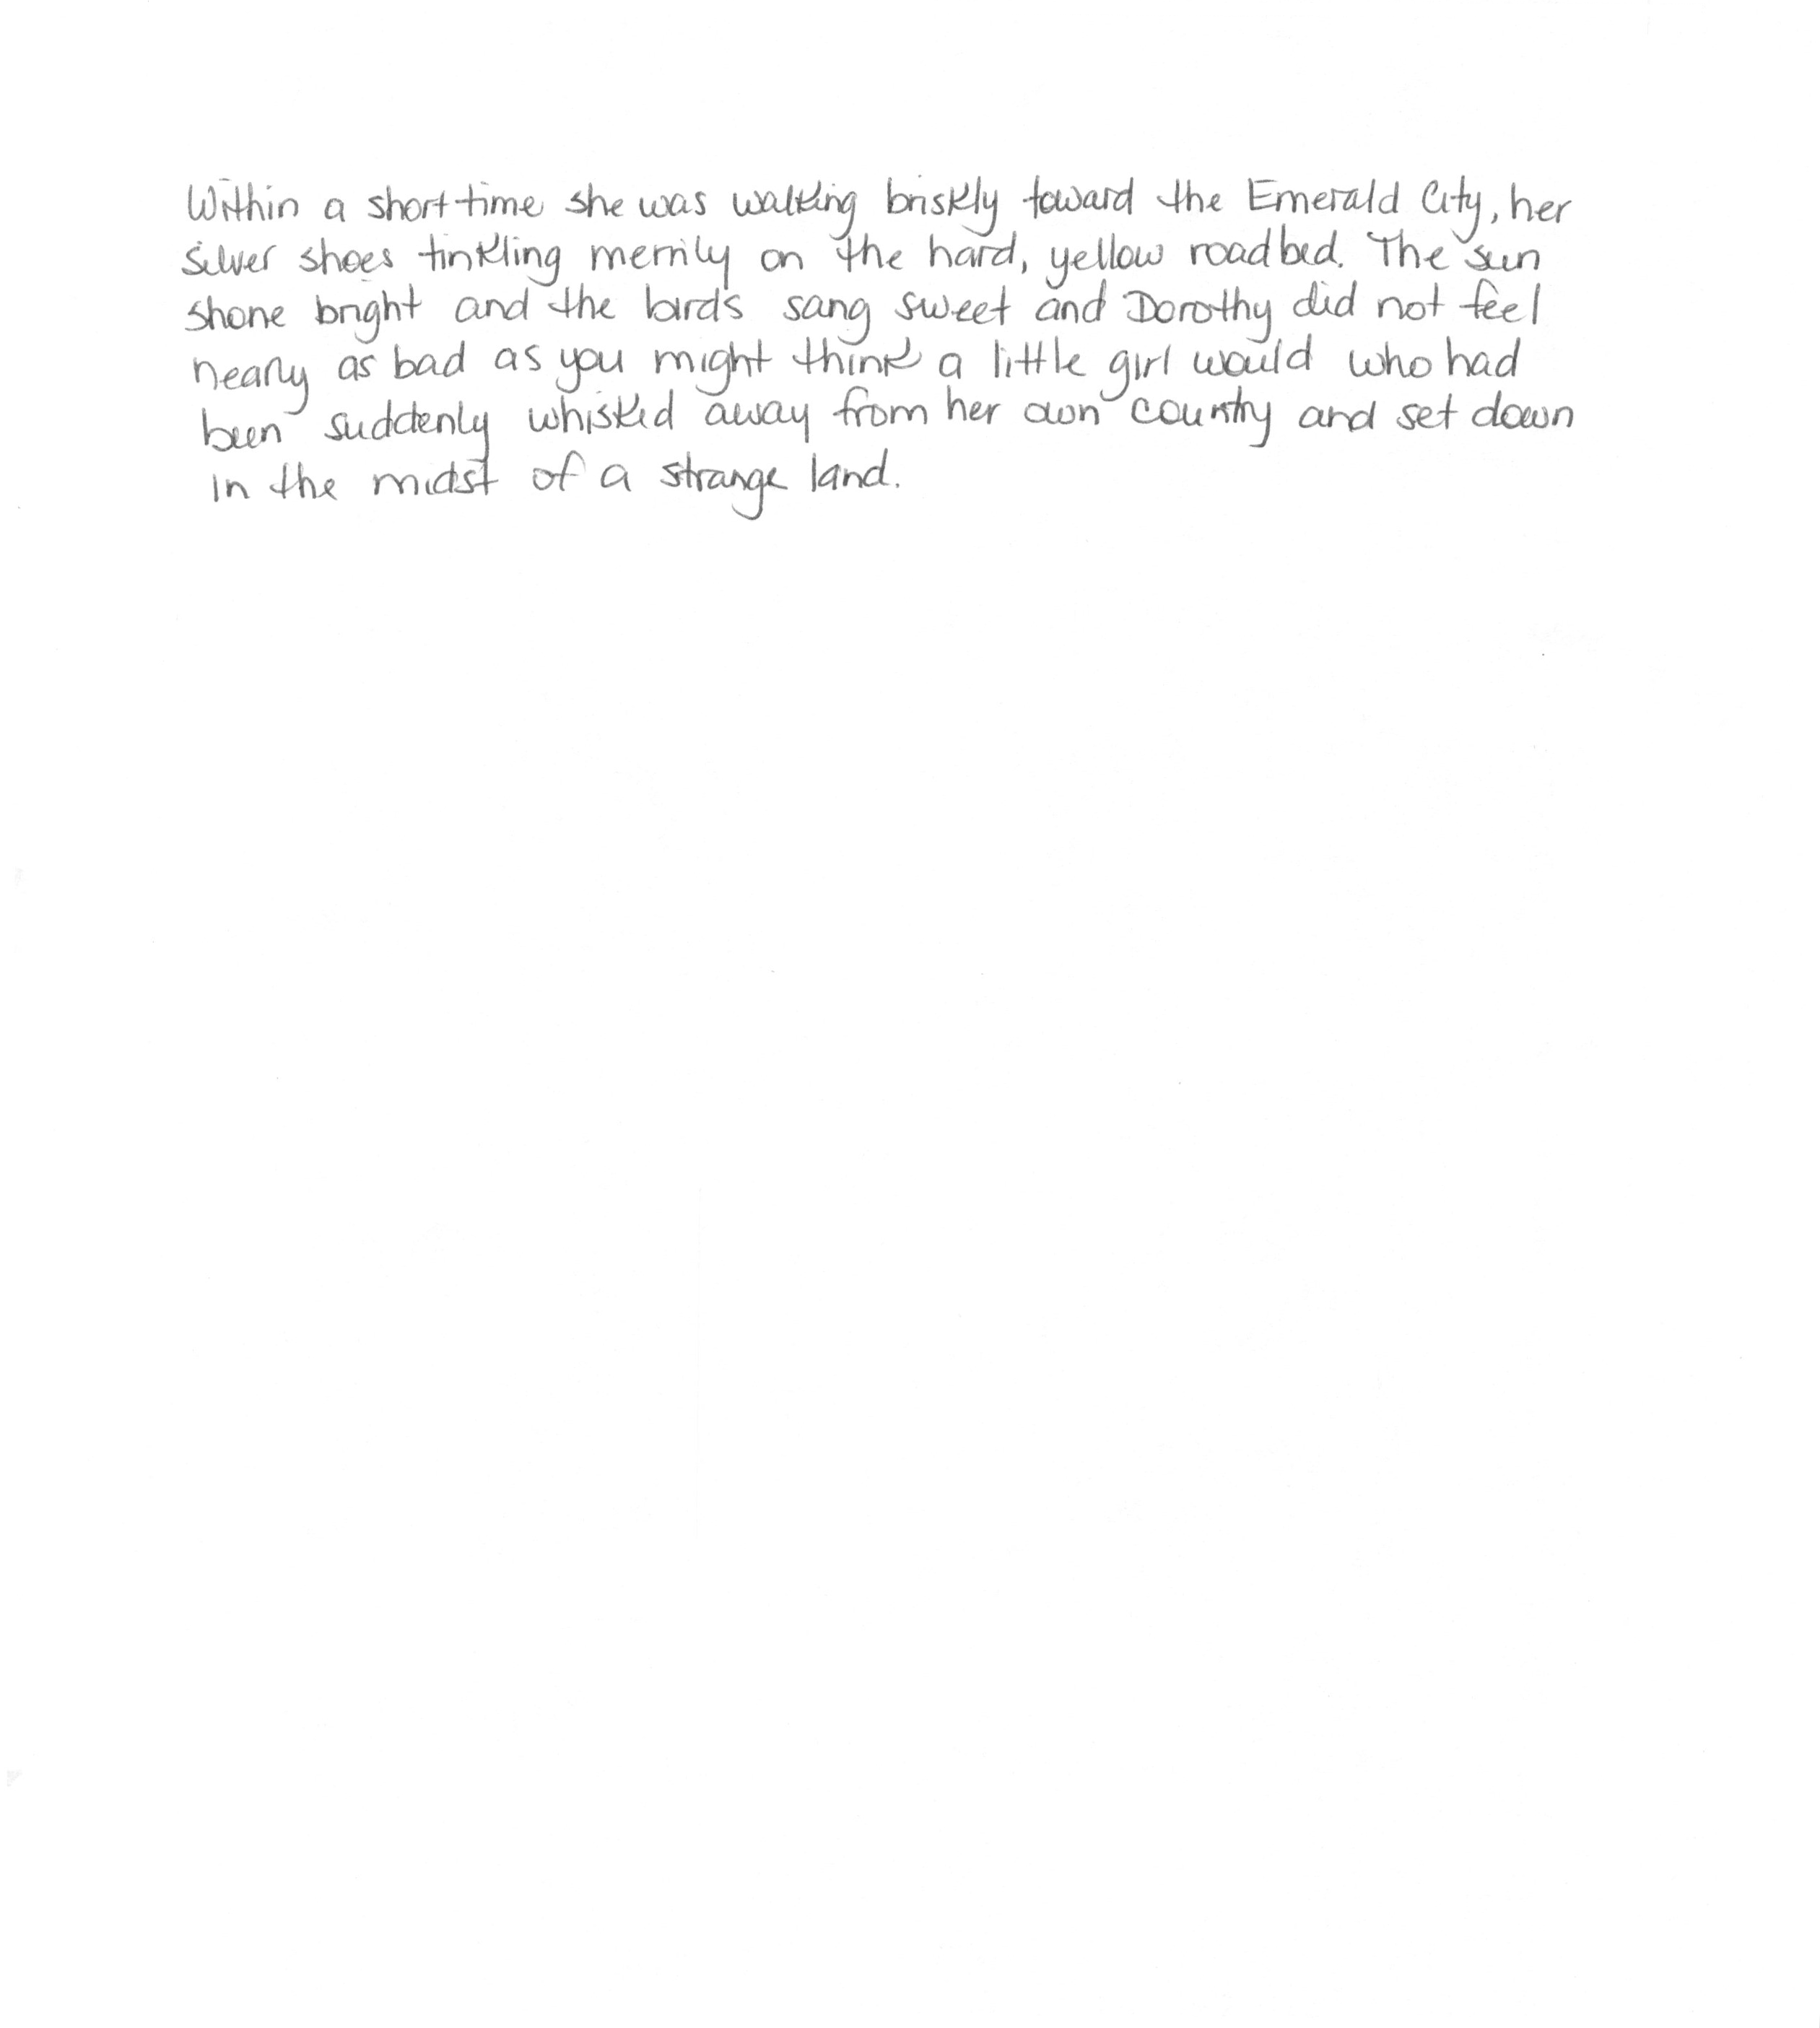 Within a short time she was walking briskly toward the Emerald City, her
silver shoes tinkling merrily on the hard, yellow roadbed. The sun
shone bright and the birds sang sweet and Dorothy did not feel
nearly as bad as you might think a little girl would who had
been suddenly whisked away from her own country and set down
in the midst of a strange land.